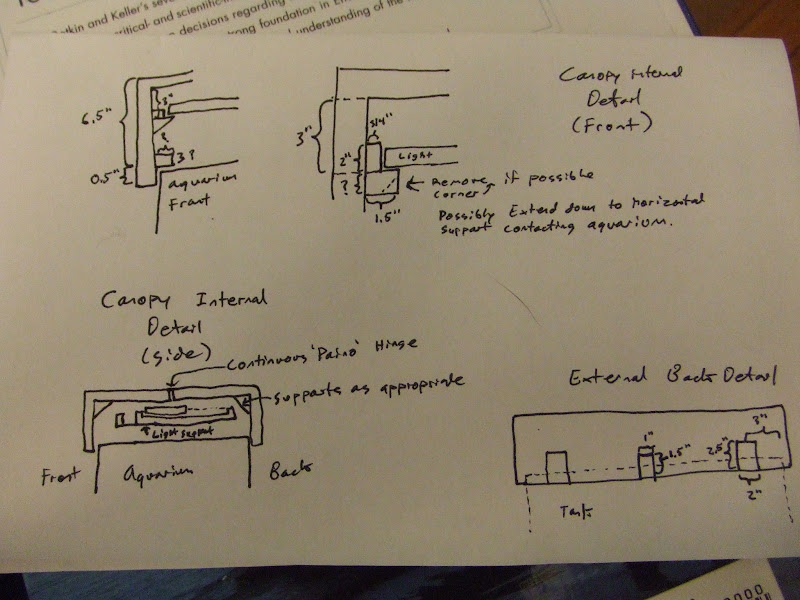 otkin and Keller's seve
critical and scientific
decisions regarding
ong foundation in En
understanding of the
Canopy Internal
Detail
(Front)
6.5"
3"
?
3?
0.5"
aquarium
Front
3"
3/4"
2"
Light
?
1.5"
Remove if possible
corner
Possibly Extend down to horizontal
support contacting aquarium.
Canopy Internal
Detail
(side)
Continuous 'Paino' Hinge
Supports as appropriate
Light Support
Front Aquarium Back
External Back Detail
1"
1.5"
2.5"
3"
2"
Tank
0000